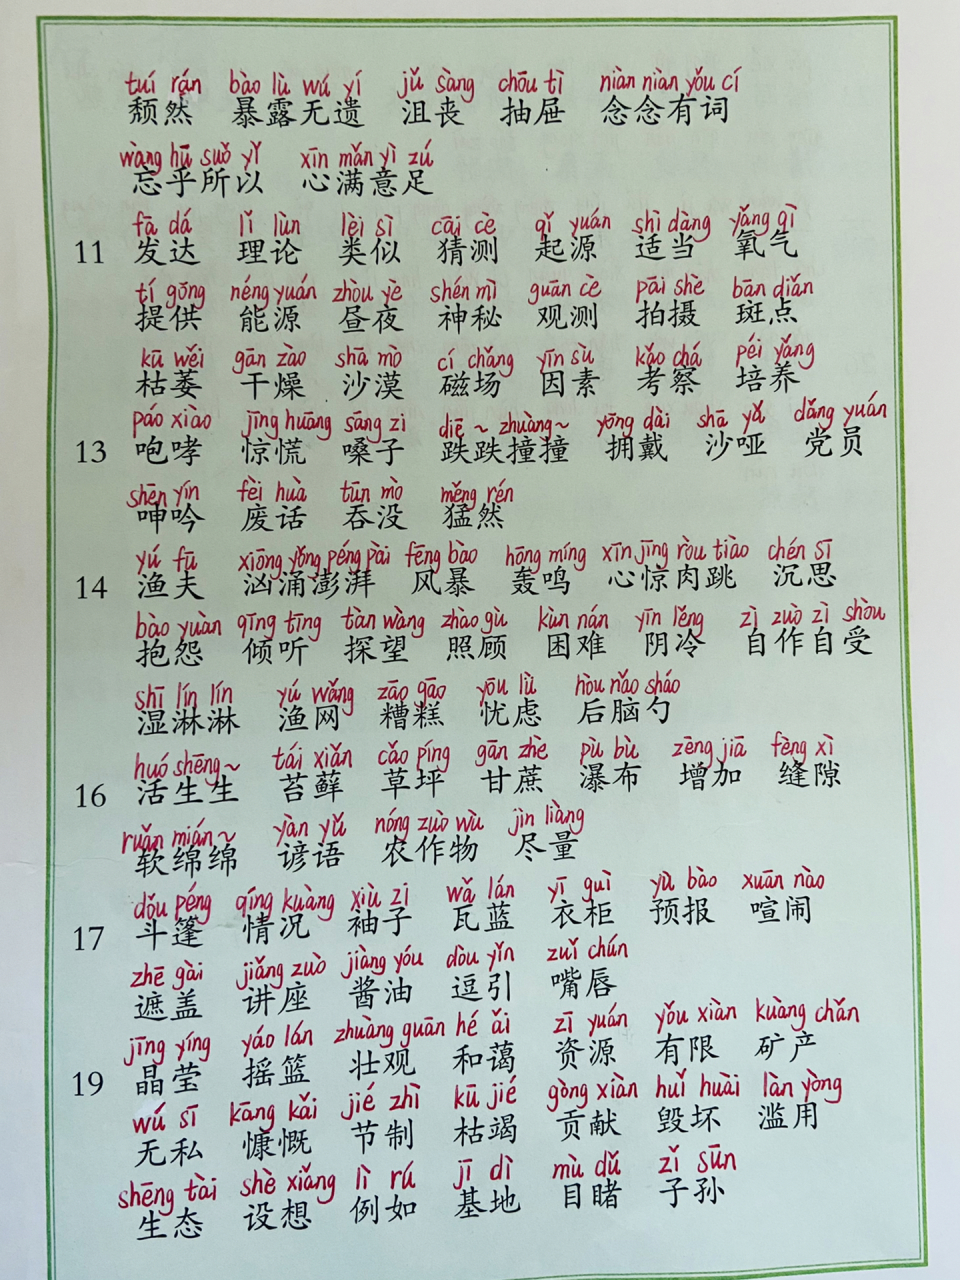 tuí rán bào lù wú yí jǔ sàng chōu tì niàn niàn yǒu cí
颓然 暴露无遗 沮丧 抽屉 念念有词
wàng hū suǒ yǐ xīn mǎn yì zú
忘乎所以 心满意足
fā dá lǐ lùn lèi sì cāi cè qǐ yuán shì dàng yǎng qì
11 发达 理论 类似 猜测 起源 适当 氧气
tí gōng néng yuán zhòu yè shén mì guān cè pāi shè bān diǎn
提供 能源 昼夜 神秘 观测 拍摄 斑点
kū wěi gān zào shā mò cí chǎng yīn sù kǎo chá péi yǎng
枯萎 干燥 沙漠 磁场 因素 考察 培养
páo xiào jīng huāng sǎng zi diē ~ zhuàng ~ yōng dài shā yǎ dǎng yuán
13 咆哮 惊慌 嗓子 跌跌撞撞 拥戴 沙哑 党员
shēn yín fèi huà tūn mò měng rén
呻吟 废话 吞没 猛然
yú fū xiōng yǒng péng pài fēng bào hōng míng xīn jīng ròu tiào chén sī
14 渔夫 汹涌澎湃 风暴 轰鸣 心惊肉跳 沉思
bào yuàn qīng tīng tàn wàng zhào gù kùn nán yīn lěng zì zuò zì shòu
抱怨 倾听 探望 照顾 困难 阴冷 自作自受
shī lín lín yú wǎng zāo gāo yōu lǜ hòu nǎo sháo
湿淋淋 渔网 糟糕 忧虑 后脑勺
huó shēng ~ tái xiǎn cǎo píng gān zhè pù bù zēng jiā fèng xì
16 活生生 苔藓 草坪 甘蔗 瀑布 增加 缝隙
ruǎn mián ~ yàn yǔ nóng zuò wù jìn liàng
软绵绵 谚语 农作物 尽量
dǒu péng qíng kuàng xiù zi wǎ lán yī guì yù bào xuān nào
17 斗篷 情况 袖子 瓦蓝 衣柜 预报 喧闹
zhē gài jiǎng zuò jiàng yóu dòu yǐn zuǐ chún
遮盖 讲座 酱油 逗引 嘴唇
jīng yíng yáo lán zhuàng guān hé ǎi zī yuán yǒu xiàn kuàng chǎn
19 晶莹 摇篮 壮观 和蔼 资源 有限 矿产
wú sī kāng kǎi jié zhì kū jié gòng xiàn huǐ huài làn yòng
无私 慷慨 节制 枯竭 贡献 毁坏 滥用
shēng tài shè xiǎng lì rú jī dì mù dǔ zǐ sūn
生态 设想 例如 基地 目睹 子孙